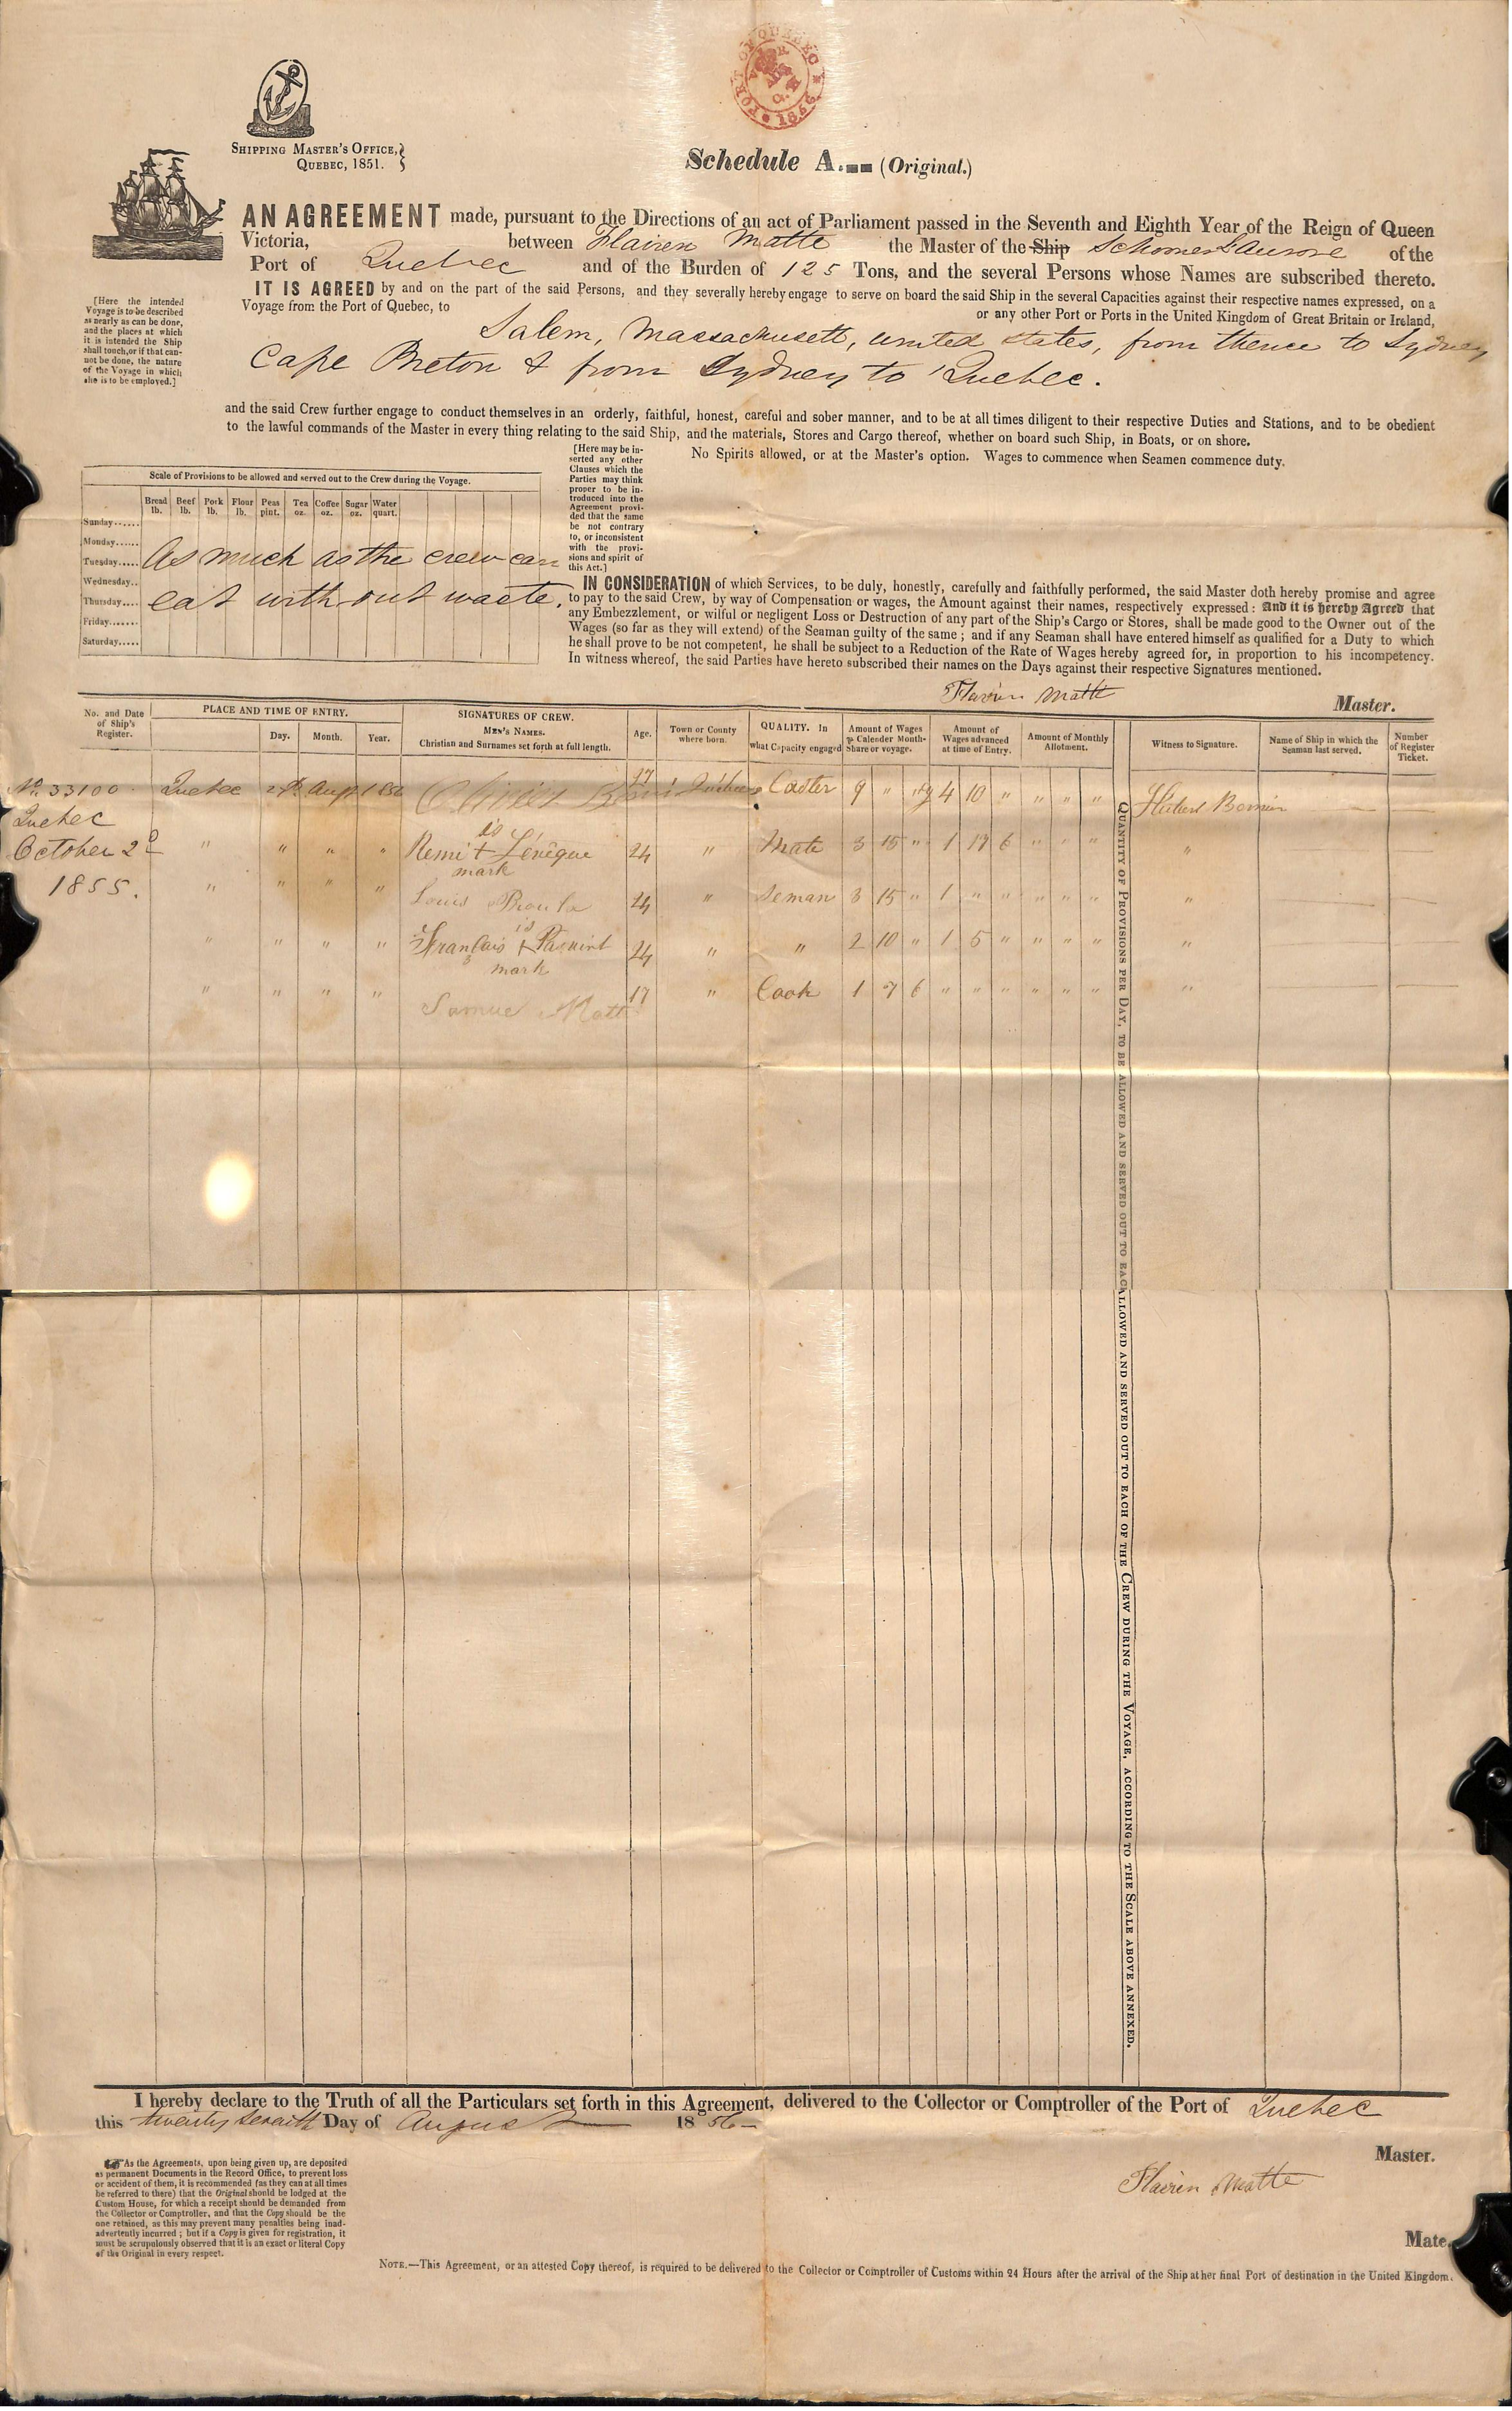 PORT OF QUEBEC
1856
SHIPPING MASTER'S OFFICE,
QUEBEC, 1851.
Schedule A. (Original.)
AN AGREEMENT made, pursuant to the Directions of an act of Parliament passed in the Seventh and Eighth Year of the Reign of Queen
Victoria, between Flavien Matte the Master of the Ship Schooner L'aurore of the
Port of Quebec and of the Burden of 125 Tons, and the several Persons whose Names are subscribed thereto.
IT IS AGREED by and on the part of the said Persons, and they severally hereby engage to serve on board the said Ship in the several Capacities against their respective names expressed, on a
Voyage from the Port of Quebec, to or any other Port or Ports in the United Kingdom of Great Britain or Ireland,
[Here the intended
Voyage is to be described
as nearly as can be done,
and the places at which
it is intended the Ship
shall touch, or if that can-
not be done, the nature
of the Voyage in which
she is to be employed.]
Salem, Massachusett, united states, from thence to Sydney
Cape Breton & from Sydney to Quebec.
and the said Crew further engage to conduct themselves in an orderly, faithful, honest, careful and sober manner, and to be at all times diligent to their respective Duties and Stations, and to be obedient
to the lawful commands of the Master in every thing relating to the said Ship, and the materials, Stores and Cargo thereof, whether on board such Ship, in Boats, or on shore.
[Here may be in-
serted any other
Clauses which the
Parties may think
proper to be in-
troduced into the
Agreement provi-
ded that the same
be not contrary
to, or inconsistent
with the provi-
sions and spirit of
this Act.]
No Spirits allowed, or at the Master's option. Wages to commence when Seamen commence duty.
Scale of Provisions to be allowed and served out to the Crew during the Voyage.
Bread lb. Beef lb. Pork lb. Flour lb. Peas pint. Tea oz. Coffee oz. Sugar oz. Water quart.
Sunday......
Monday......
Tuesday..... As much as the crew can
Wednesday..
Thursday.... eat with out waste.
Friday.......
Saturday.....
IN CONSIDERATION of which Services, to be duly, honestly, carefully and faithfully performed, the said Master doth hereby promise and agree
to pay to the said Crew, by way of Compensation or wages, the Amount against their names, respectively expressed: And it is hereby Agreed that
any Embezzlement, or wilful or negligent Loss or Destruction of any part of the Ship's Cargo or Stores, shall be made good to the Owner out of the
Wages (so far as they will extend) of the Seaman guilty of the same; and if any Seaman shall have entered himself as qualified for a Duty to which
he shall prove to be not competent, he shall be subject to a Reduction of the Rate of Wages hereby agreed for, in proportion to his incompetency.
In witness whereof, the said Parties have hereto subscribed their names on the Days against their respective Signatures mentioned.
Flavien Matte
Master.
No. and Date of Ship's Register. PLACE AND TIME OF ENTRY. Day. Month. Year. SIGNATURES OF CREW. MEN'S NAMES. Christian and Surnames set forth at full length. Age. Town or County where born. QUALITY. In what Capacity engaged Amount of Wages ⅌ Calender Month- Share or voyage. Amount of Wages advanced at time of Entry. Amount of Monthly Allotment. Witness to Signature. Name of Ship in which the Seaman last served. Number of Register Ticket.
No. 33100 Quebec 27th Augt 1856 Olivier 47 Quebec 9 " " 4 10 " " " " Hubert Bernier
Quebec
October 2d " " " " Remi his + mark Lévêque 24 " Mate 3 15 " 1 17 6 " " " "
1855. " " " " Louis Proulx 24 " Seman 3 15 " 1 " " " " " "
" " " " Français his + mark 24 " " 2 10 " 1 5 " " " " "
" " " " Samuel Matte 17 " Cook 1 7 6 " " " " " " "
QUANTITY OF PROVISIONS PER DAY, TO BE ALLOWED AND SERVED OUT TO EACH
ALLOWED AND SERVED OUT TO EACH OF THE CREW DURING THE VOYAGE, ACCORDING TO THE SCALE ABOVE ANNEXED.
I hereby declare to the Truth of all the Particulars set forth in this Agreement, delivered to the Collector or Comptroller of the Port of Quebec
this twenty seventh Day of August 1856
Master.
Flavien Matte
Mate.
As the Agreements, upon being given up, are deposited
as permanent Documents in the Record Office, to prevent loss
or accident of them, it is recommended (as they can at all times
be referred to there) that the Original should be lodged at the
Custom House, for which a receipt should be demanded from
the Collector or Comptroller, and that the Copy should be the
one retained, as this may prevent many penalties being inad-
advertently incurred; but if a Copy is given for registration, it
must be scrupulously observed that it is an exact or literal Copy
of the Original in every respect.
NOTE.—This Agreement, or an attested Copy thereof, is required to be delivered to the Collector or Comptroller of Customs within 24 Hours after the arrival of the Ship at her final Port of destination in the United Kingdom.